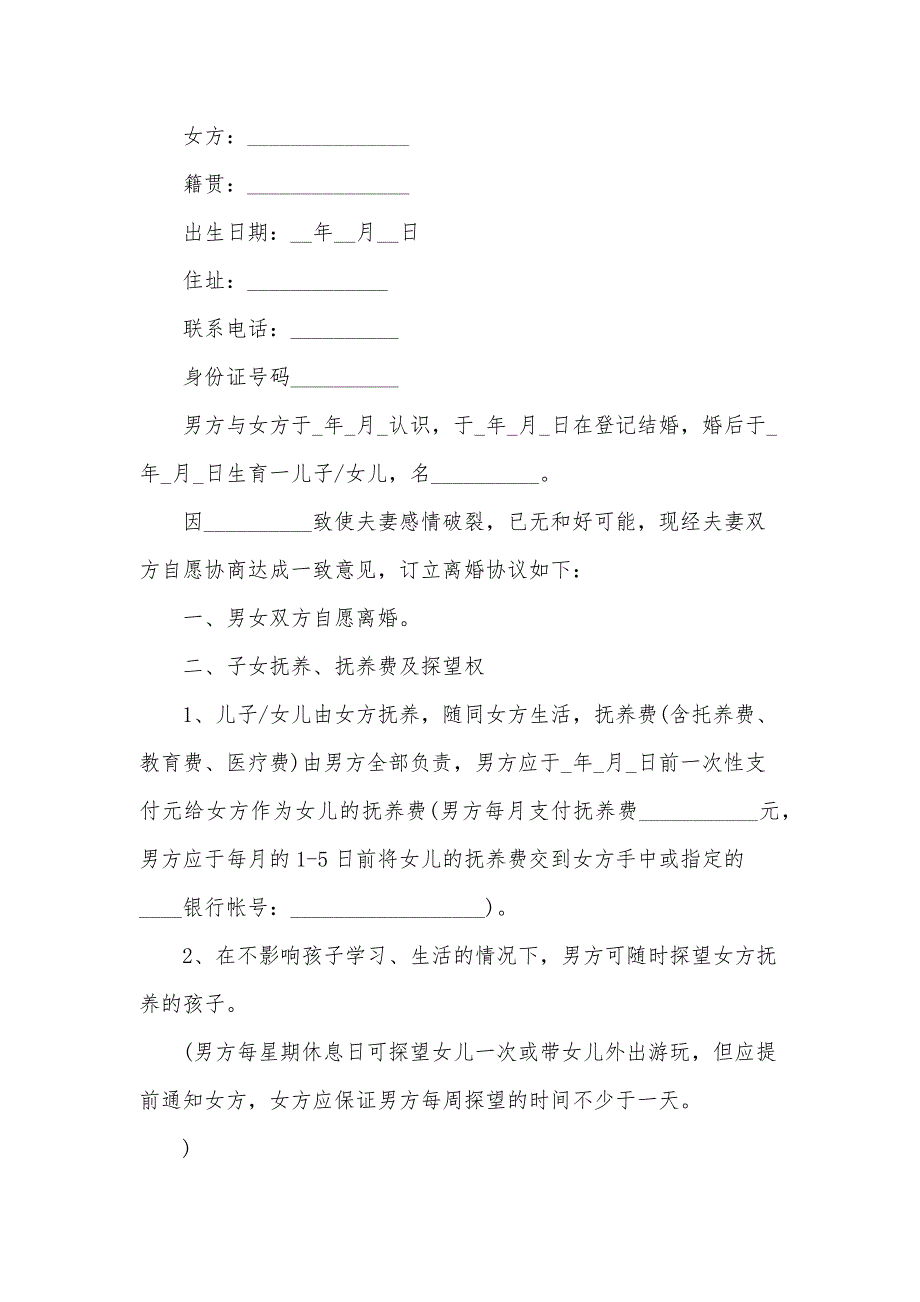 女方：_______________
籍贯：_______________
出生日期：__年__月__日
住址：_____________
联系电话：__________
身份证号码__________
男方与女方于_年_月_认识，于_年_月_日在登记结婚，婚后于_
年_月_日生育一儿子/女儿，名__________。
因__________致使夫妻感情破裂，已无和好可能，现经夫妻双
方自愿协商达成一致意见，订立离婚协议如下：
一、男女双方自愿离婚。
二、子女抚养、抚养费及探望权
1、儿子/女儿由女方抚养，随同女方生活，抚养费(含托养费、
教育费、医疗费)由男方全部负责，男方应于_年_月_日前一次性支
付元给女方作为女儿的抚养费(男方每月支付抚养费___________元，
男方应于每月的 1-5 日前将女儿的抚养费交到女方手中或指定的
____银行帐号：__________________)。
2、在不影响孩子学习、生活的情况下，男方可随时探望女方抚
养的孩子。
(男方每星期休息日可探望女儿一次或带女儿外出游玩，但应提
前通知女方，女方应保证男方每周探望的时间不少于一天。
)